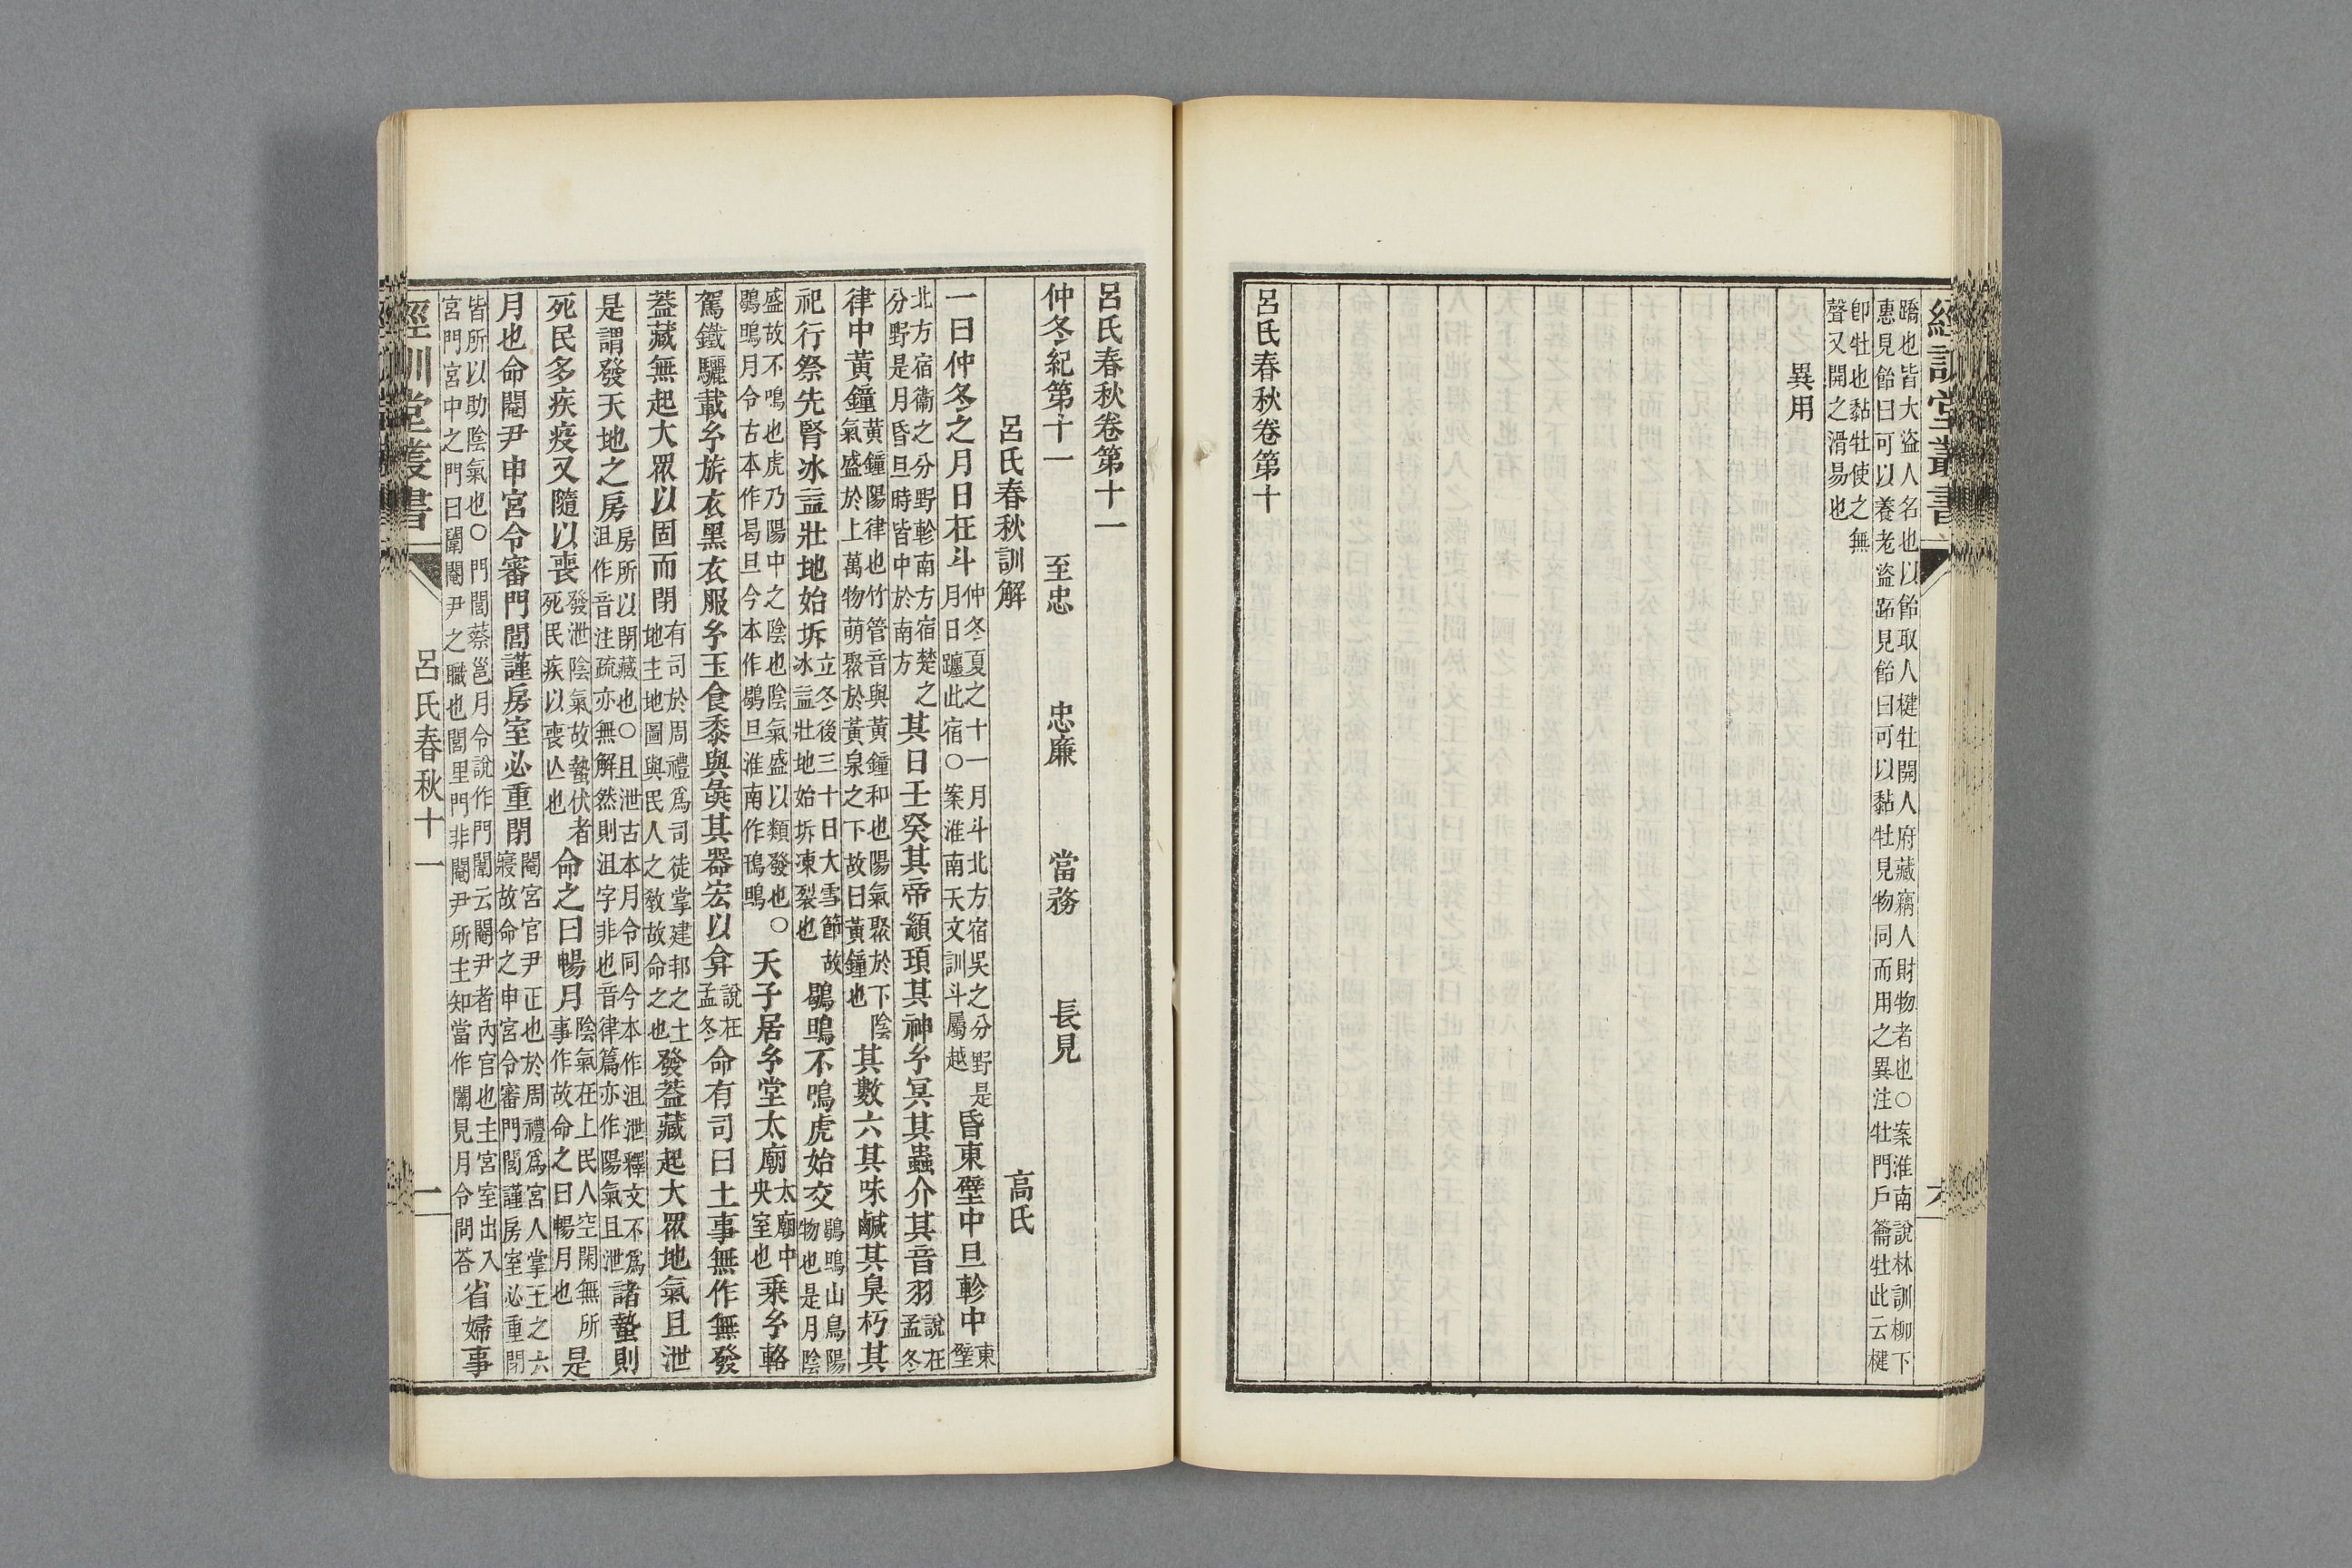 經訓堂叢書
六
蹻也皆大盗人名也以飴取人楗牡開人府藏竊人財物者也○案淮南說林訓柳下
惠見飴曰可以養老盗跖見飴曰可以黏牡見物同而用之異注牡門戶籥牡此云楗
卽牡也黏牡使之無
聲又開之滑易也
異用
呂氏春秋卷第十
呂氏春秋卷第十一
仲冬紀第十一 至忠 忠廉 當務 長見
呂氏春秋訓解 高氏
一曰仲冬之月日在斗仲冬夏之十一月斗北方宿吳之分野是月日躔此宿○案淮南天文訓斗屬越昏東壁中旦軫中東壁
北方宿衞之分野軫南方宿楚之分野是月昏旦時皆中於南方其日壬癸其帝顓頊其神𤣥冥其蟲介其音羽說在孟冬
律中黃鐘黃鐘陽律也竹管音與黃鐘和也陽氣聚於下陰氣盛於上萬物萌聚於黃泉之下故曰黃鐘也其數六其味鹹其臭朽其
祀行祭先腎冰益壯地始坼立冬後三十日大雪節故冰益壯地始坼凍裂也鶡鴠不鳴虎始交鶡鴠山鳥陽物也是月陰
盛故不鳴也虎乃陽中之陰也陰氣盛以類發也○鶡鴠月令古本作曷旦今本作鶡旦淮南作鳱鴠天子居𤣥堂太廟太廟中央室也乘𤣥輅
駕鐵驪載𤣥旂衣黑衣服𤣥玉食黍與彘其器宏以弇說在孟冬命有司曰土事無作無發
蓋藏無起大眾以固而閉有司於周禮爲司徒掌建邦之土地主地圖與民人之教故命之也發蓋藏起大眾地氣且泄
是謂發天地之房房所以閉藏也○且泄古本月令同今本作沮泄釋文不爲沮作音注疏亦無解然則沮字非也音律篇亦作陽氣且泄諸蟄則
死民多疾疫又隨以喪發泄陰氣故蟄伏者死民疾以喪亾也命之曰暢月陰氣在上民人空閑無所事作故命之曰暢月也是
月也命閹尹申宮令審門閭謹房室必重閉閹宮官尹正也於周禮爲宮人掌王之六寢故命之申宮令審門閭謹房室必重閉
皆所以助陰氣也○門閭蔡邕月令說作門闈云閹尹者內官也主宮室出入宮門宮中之門曰闈閹尹之職也閭里門非閹尹所主知當作闈見月令問荅省婦事
經訓堂叢書
呂氏春秋十一
一